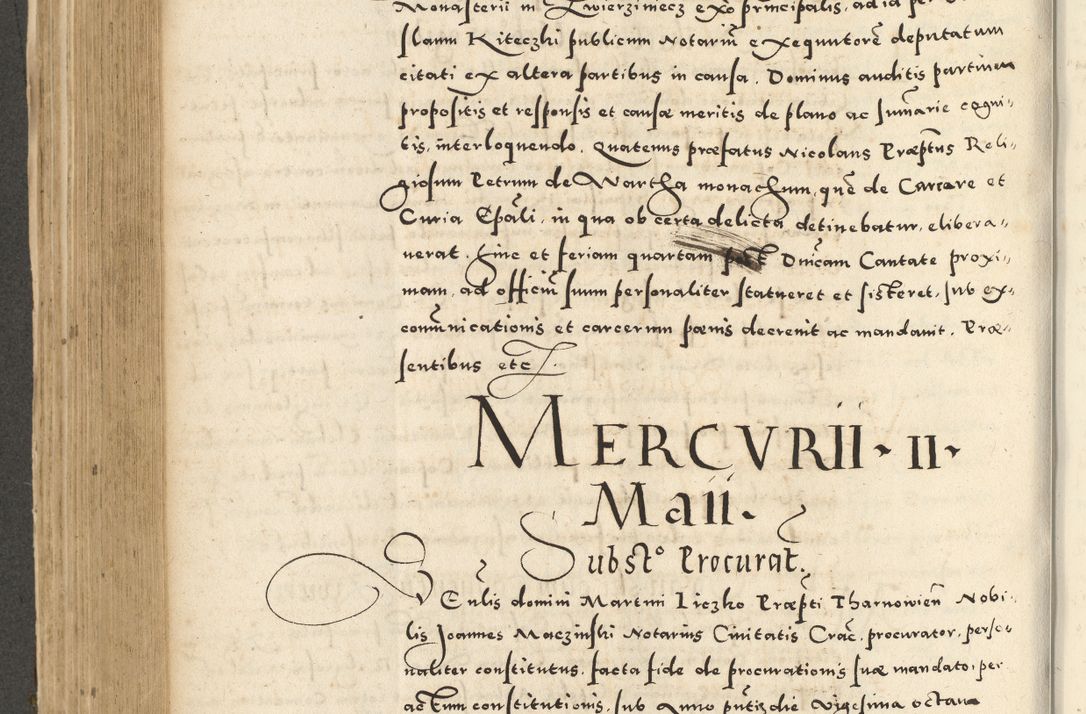 Monasterii in Zwierziniecz ex̄o principalis, ad id per
slaum Kiteczki publicum Notariū exequutorē deputatum
citati ex altera partibus in causa. Dominus auditis partium
propositis et responsis et causæ meritis de plano ac sum̄arie cogni-
tis, interloquendo. Quatenus præfatus Nicolaus Præptus Reli-
giosum Petrum de Wartha monachum, quē de Carcere et
Curia Epāli, in qua ob certa delicta detinebatur, elibera-
uerat. hinc et feriam quartam post Dnīcam Cantate proxi-
mam, ad officiū suum personaliter statueret et sisteret, sub ex-
com̄unicationis et carcerum pœnis decreuit ac mandauit. Præ-
sentibus etc.
MERCVRII · II ·
Maii.
Substº Procurat.
Venlis domini Martini Liczko Præpti Tharnowień Nobi-
lis Joannes Maczinski Notarius Ciuitatis Crac̄. procurator, perso-
naliter constitutus, facta fide de procurationis suæ mandato, per
actum constitutionis, sub Anno pn̄ti, die vigesima octaua